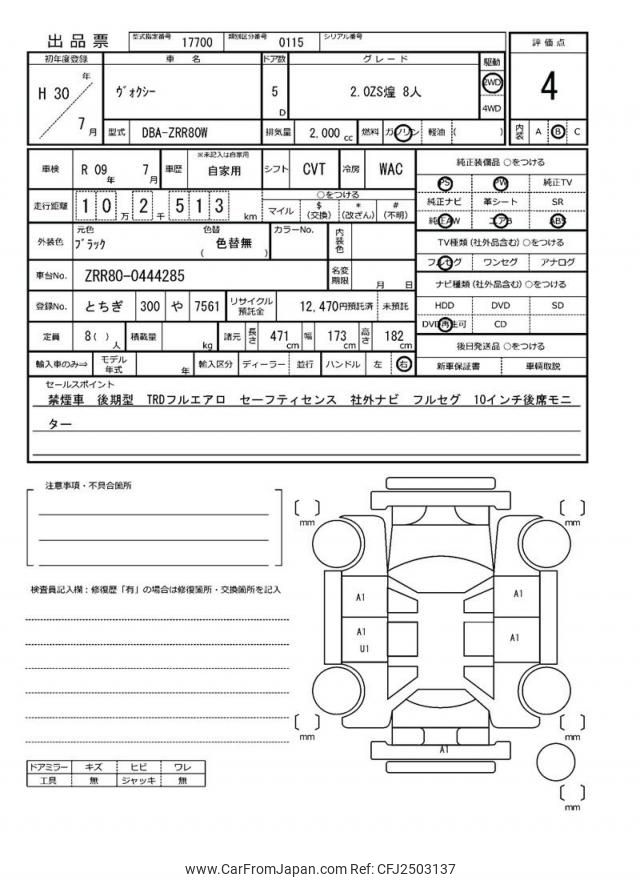 出品票 型式指定番号 17700 類別区分番号 0115 シリアル番号
評価点
初年度登録 車名 ドア数 グレード 駆動
H 30 年 7 月 ヴォクシー 5 D 2.0ZS煌 8人 2WD 4WD
4
型式 DBA-ZRR80W 排気量 2,000 cc 燃料 ガソリン 軽油 ( )
内装 A B C
車検 R 09 年 7 月 車歴 ※未記入は自家用 自家用 シフト CVT 冷房 WAC
純正装備品 ○をつける
PS PW 純正TV
走行距離 10万2千513 km ○をつける
マイル $(交換) *(改ざん) #(不明)
純正ナビ 革シート SR
純正AW エアB ABS
外装色 元色 ブラック 色替 色替無 ( ) カラーNo. 内装色
TV種類(社外品含む)○をつける
フルセグ ワンセグ アナログ
車台No. ZRR80-0444285 名変期限 月 日
ナビ種類(社外品含む)○をつける
HDD DVD SD
登録No. とちぎ 300 や 7561 リサイクル預託金 12,470円預託済 未預託
DVD再生可 CD
定員 8( )人 積載量 kg 諸元 長さ 471 cm 幅 173 cm 高さ 182 cm
後日発送品 ○をつける
輸入車のみ⇒ モデル年式 年 輸入区分 ディーラー 並行 ハンドル 左 右
新車保証書 車輌取説
セールスポイント
禁煙車 後期型 TRDフルエアロ セーフティセンス 社外ナビ フルセグ 10インチ後席モニ
ター
注意事項・不具合箇所
mm
mm
検査員記入欄:修復歴「有」の場合は修復箇所・交換箇所を記入
A1
A1
A1
U1
A1
mm
mm
A1
mm
ドアミラー キズ ヒビ ワレ
工具 無 ジャッキ 無
www.CarFromJapan.com Ref: CFJ2503137